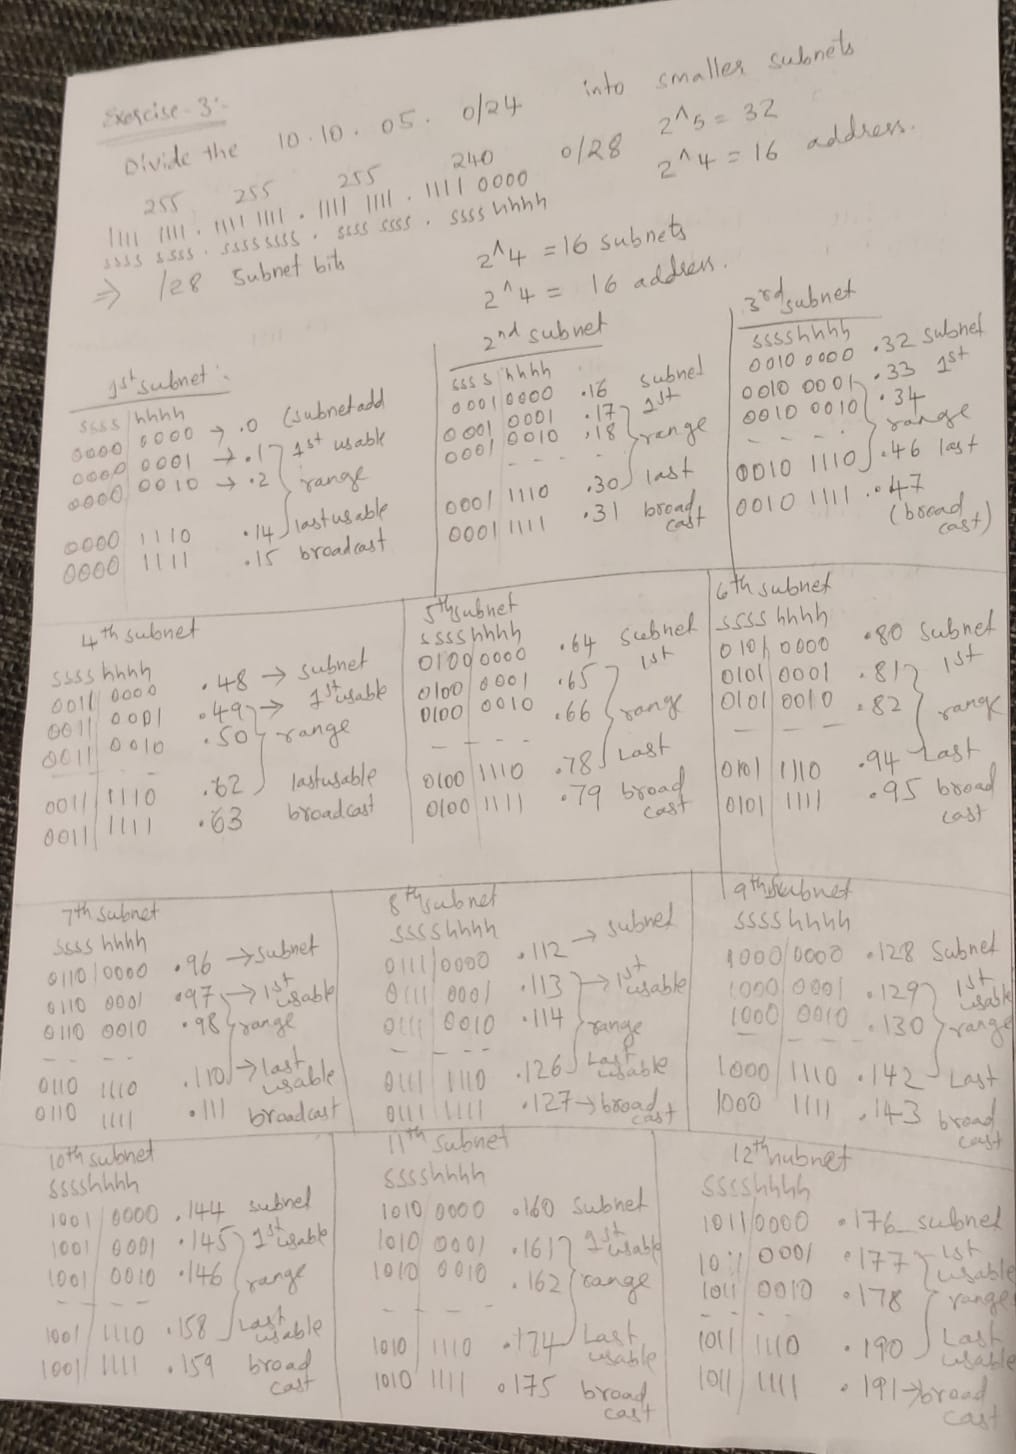 Exercise-3:-
Divide the 10.10.05.0/24 into smaller subnets
255 255 255 240 0/28 2^5 = 32
1111 1111 . 1111 1111 . 1111 1111 . 1111 0000 2^4 = 16 address.
ssss ssss . ssssssss . ssss ssss . ssss hhhh
⇒ /28 Subnet bits
2^4 = 16 subnets
2^4 = 16 address.
1st subnet:
ssss hhhh
0000 0000 → .0 (subnet add
0000 0001 → .1 1st usable
0000 0010 → .2 range
0000 1110 .14 last usable
0000 1111 .15 broadcast
2nd subnet
ssss hhhh
0001 0000 .16 subnet
0001 0001 .17 1st
0001 0010 .18 range
- - - -
0001 1110 .30 last
0001 1111 .31 broad
cast
3rd subnet
sssshhhh
0010 0000 .32 subnet
0010 0001 .33 1st
0010 0010 .34
- - - - range
0010 1110 .46 last
0010 1111 .47
(broad
cast)
4th subnet
ssss hhhh
0011 0000 .48 → subnet
0011 0001 .49 → 1st usable
0011 0010 .50 range
- - - -
0011 1110 .62 last usable
0011 1111 .63 broadcast
5th subnet
ssss hhhh
0100 0000 .64 subnet
0100 0001 .65 1st
0100 0010 .66 range
- - - -
0100 1110 .78 Last
0100 1111 .79 broad
cast
6th subnet
ssss hhhh
0101 0000 .80 subnet
0101 0001 .81 1st
0101 0010 .82 range
- - -
0101 1110 .94 Last
0101 1111 .95 broad
cast
7th subnet
ssss hhhh
0110 0000 .96 → subnet
0110 0001 .97 → 1st
usable
0110 0010 .98 range
- - - -
0110 1110 .110 → last
usable
0110 1111 .111 broadcast
8th subnet
ssss hhhh
0111 0000 .112 → subnet
0111 0001 .113 → 1st
usable
0111 0010 .114 range
- - - -
0111 1110 .126 Last
usable
0111 1111 .127 → broad
cast
9th subnet
ssss hhhh
1000 0000 .128 Subnet
1000 0001 .129 1st
usable
1000 0010 .130 range
- - -
1000 1110 .142 Last
1000 1111 .143 broad
cast
10th subnet
sssshhhh
1001 0000 .144 subnet
1001 0001 .145 1st usable
1001 0010 .146 range
- - - -
1001 1110 .158 Last
usable
1001 1111 .159 broad
cast
11th subnet
sssshhhh
1010 0000 .160 subnet
1010 0001 .161 1st usable
1010 0010 .162 range
- - - -
1010 1110 .174 Last
usable
1010 1111 .175 broad
cast
12th nubnet
sssshhhh
1011 0000 .176 subnet
1011 0001 .177 1st
usable
1011 0010 .178 range
- - - -
1011 1110 .190 Last
usable
1011 1111 .191 → broad
cast